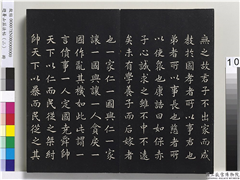 無之故君子不出家而成
教於國孝者所以事君也
弟者所以事長也慈者所
以使眾也康誥曰如保赤
子心誠求之雖不中不遠
矣未有學養子而后嫁者
也一家仁一國興仁一家
讓一國興讓一人貪戾一
國作亂其機如此此謂一
言僨事一人定國堯舜帥
天下以仁而民從之桀紂
帥天下以暴而民從之其
10